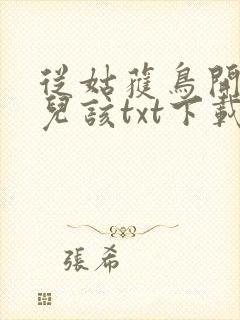 從姑獲鳥開
兒該txt下載
張希